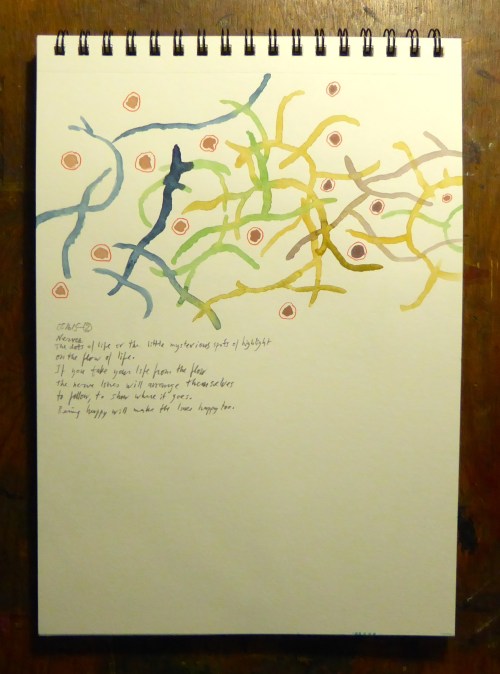 The dots of life or the little mysterious spots of highlight
on the flow of life.
If you take your life from the flow
the nerve lines will rearrange themselves
to follow, to show where it goes.
Being happy will make the lines happy too.